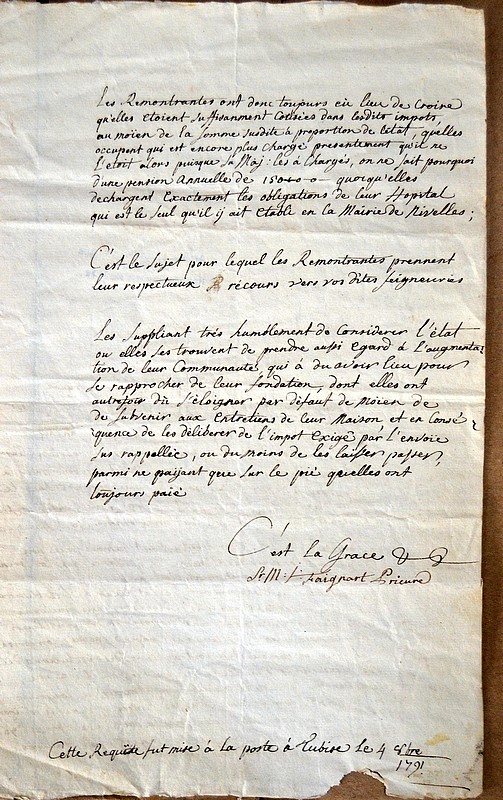 Les Remontrantes ont donc toujours eù lieu de Croire
qu'elles etoient suffisanment Cottisées dans lesdits impots,
au moïen de la somme susdite à proportion de l'etat, qu'elles
occupent qui est encore plus chargé presentement qu'il ne
l'etoit alors puisque sa Maj: les à Chargés, on ne sait pourquoi
d'une pension Annuelle de 150-0-0- quoiqu'elles
dechargent Exactement les obligations de leur Hopital
qui est le seul qu'il ij ait etabli en la Mairie de Nivelles;
C'est le sujet pour lequel les Remontrantes prennent
leur respectueux recours vers vos dites seigneuries
Les suppliant trés humblement de Considerer l'état
ou elles se trouvent de prendre aussi Egard à l'augmenta-
tion de leur Communauté, qui à du avoir lieu pour
se rapprocher de leur fondation, dont elles ont
autrefois dû s'éloigner par défaut de Moïen de
de subvenir aux Entretiens de leur Maison, et en Consé-
quence de les déliberer de l'impot Exigé par l'envoie
sus rappellée, ou du moins de les laisser passer,
parmi ne païant que sur le pié qu'elles ont
toujours païé
C'est La Grace
Sr M: Faignart Prieure
Cette Requête fut mise à la poste à Tubise le 4 8bre
1791